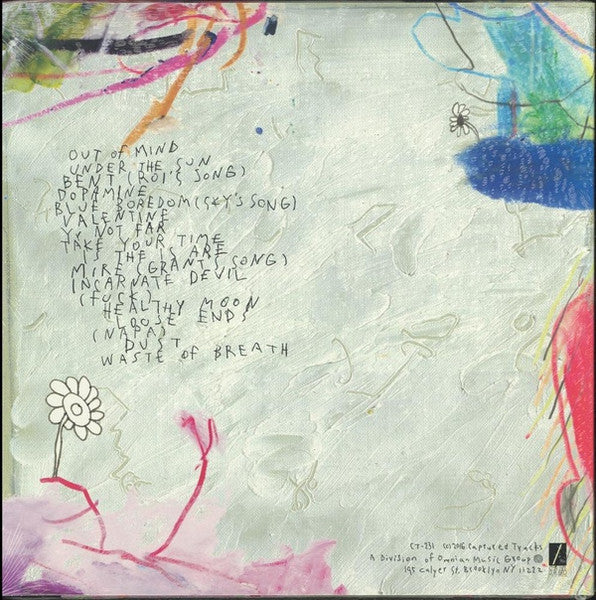 OUT OF MIND
UNDER THE SUN
BENT (ROI'S SONG)
DOPAMINE
BLUE BOREDOM (SKY'S SONG)
VALENTINE
YR NOT FAR
TAKE YOUR TIME
IS THE IS ARE
MIRE (GRANT'S SONG)
INCARNATE DEVIL
(FUCK)
HEALTHY MOON
LOOSE ENDS
(NAPA)
DUST
WASTE OF BREATH
CT-231 (c) 2016 Captured Tracks
A Division of Omnian Music Group
195 Calyer St, Brooklyn NY 11222